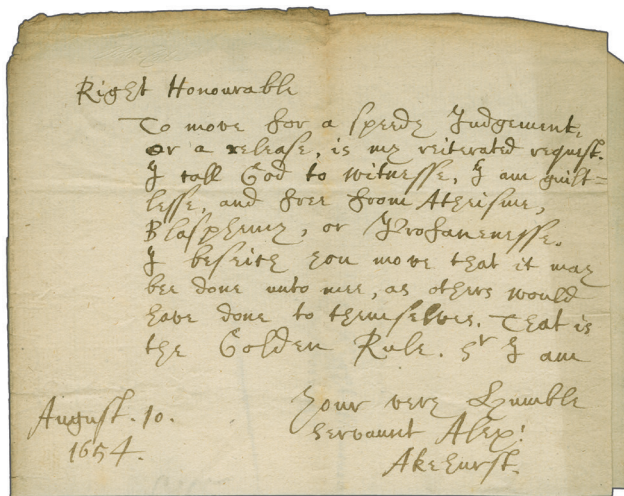 Right Honourable
To move for a speedy Judgement,
or a release, is my reiterated request.
I call God to witnesse, I am guilt=
lesse, and free from Atheisme,
Blasphemy, or Profanenesse.
I beseich you move that it may
bee done unto mee, as others would
have done to themselves. That is
the Golden Rule. Sr I am
Your very humble
servaunt Alex:
Akehurst.
August. 10.
1654.